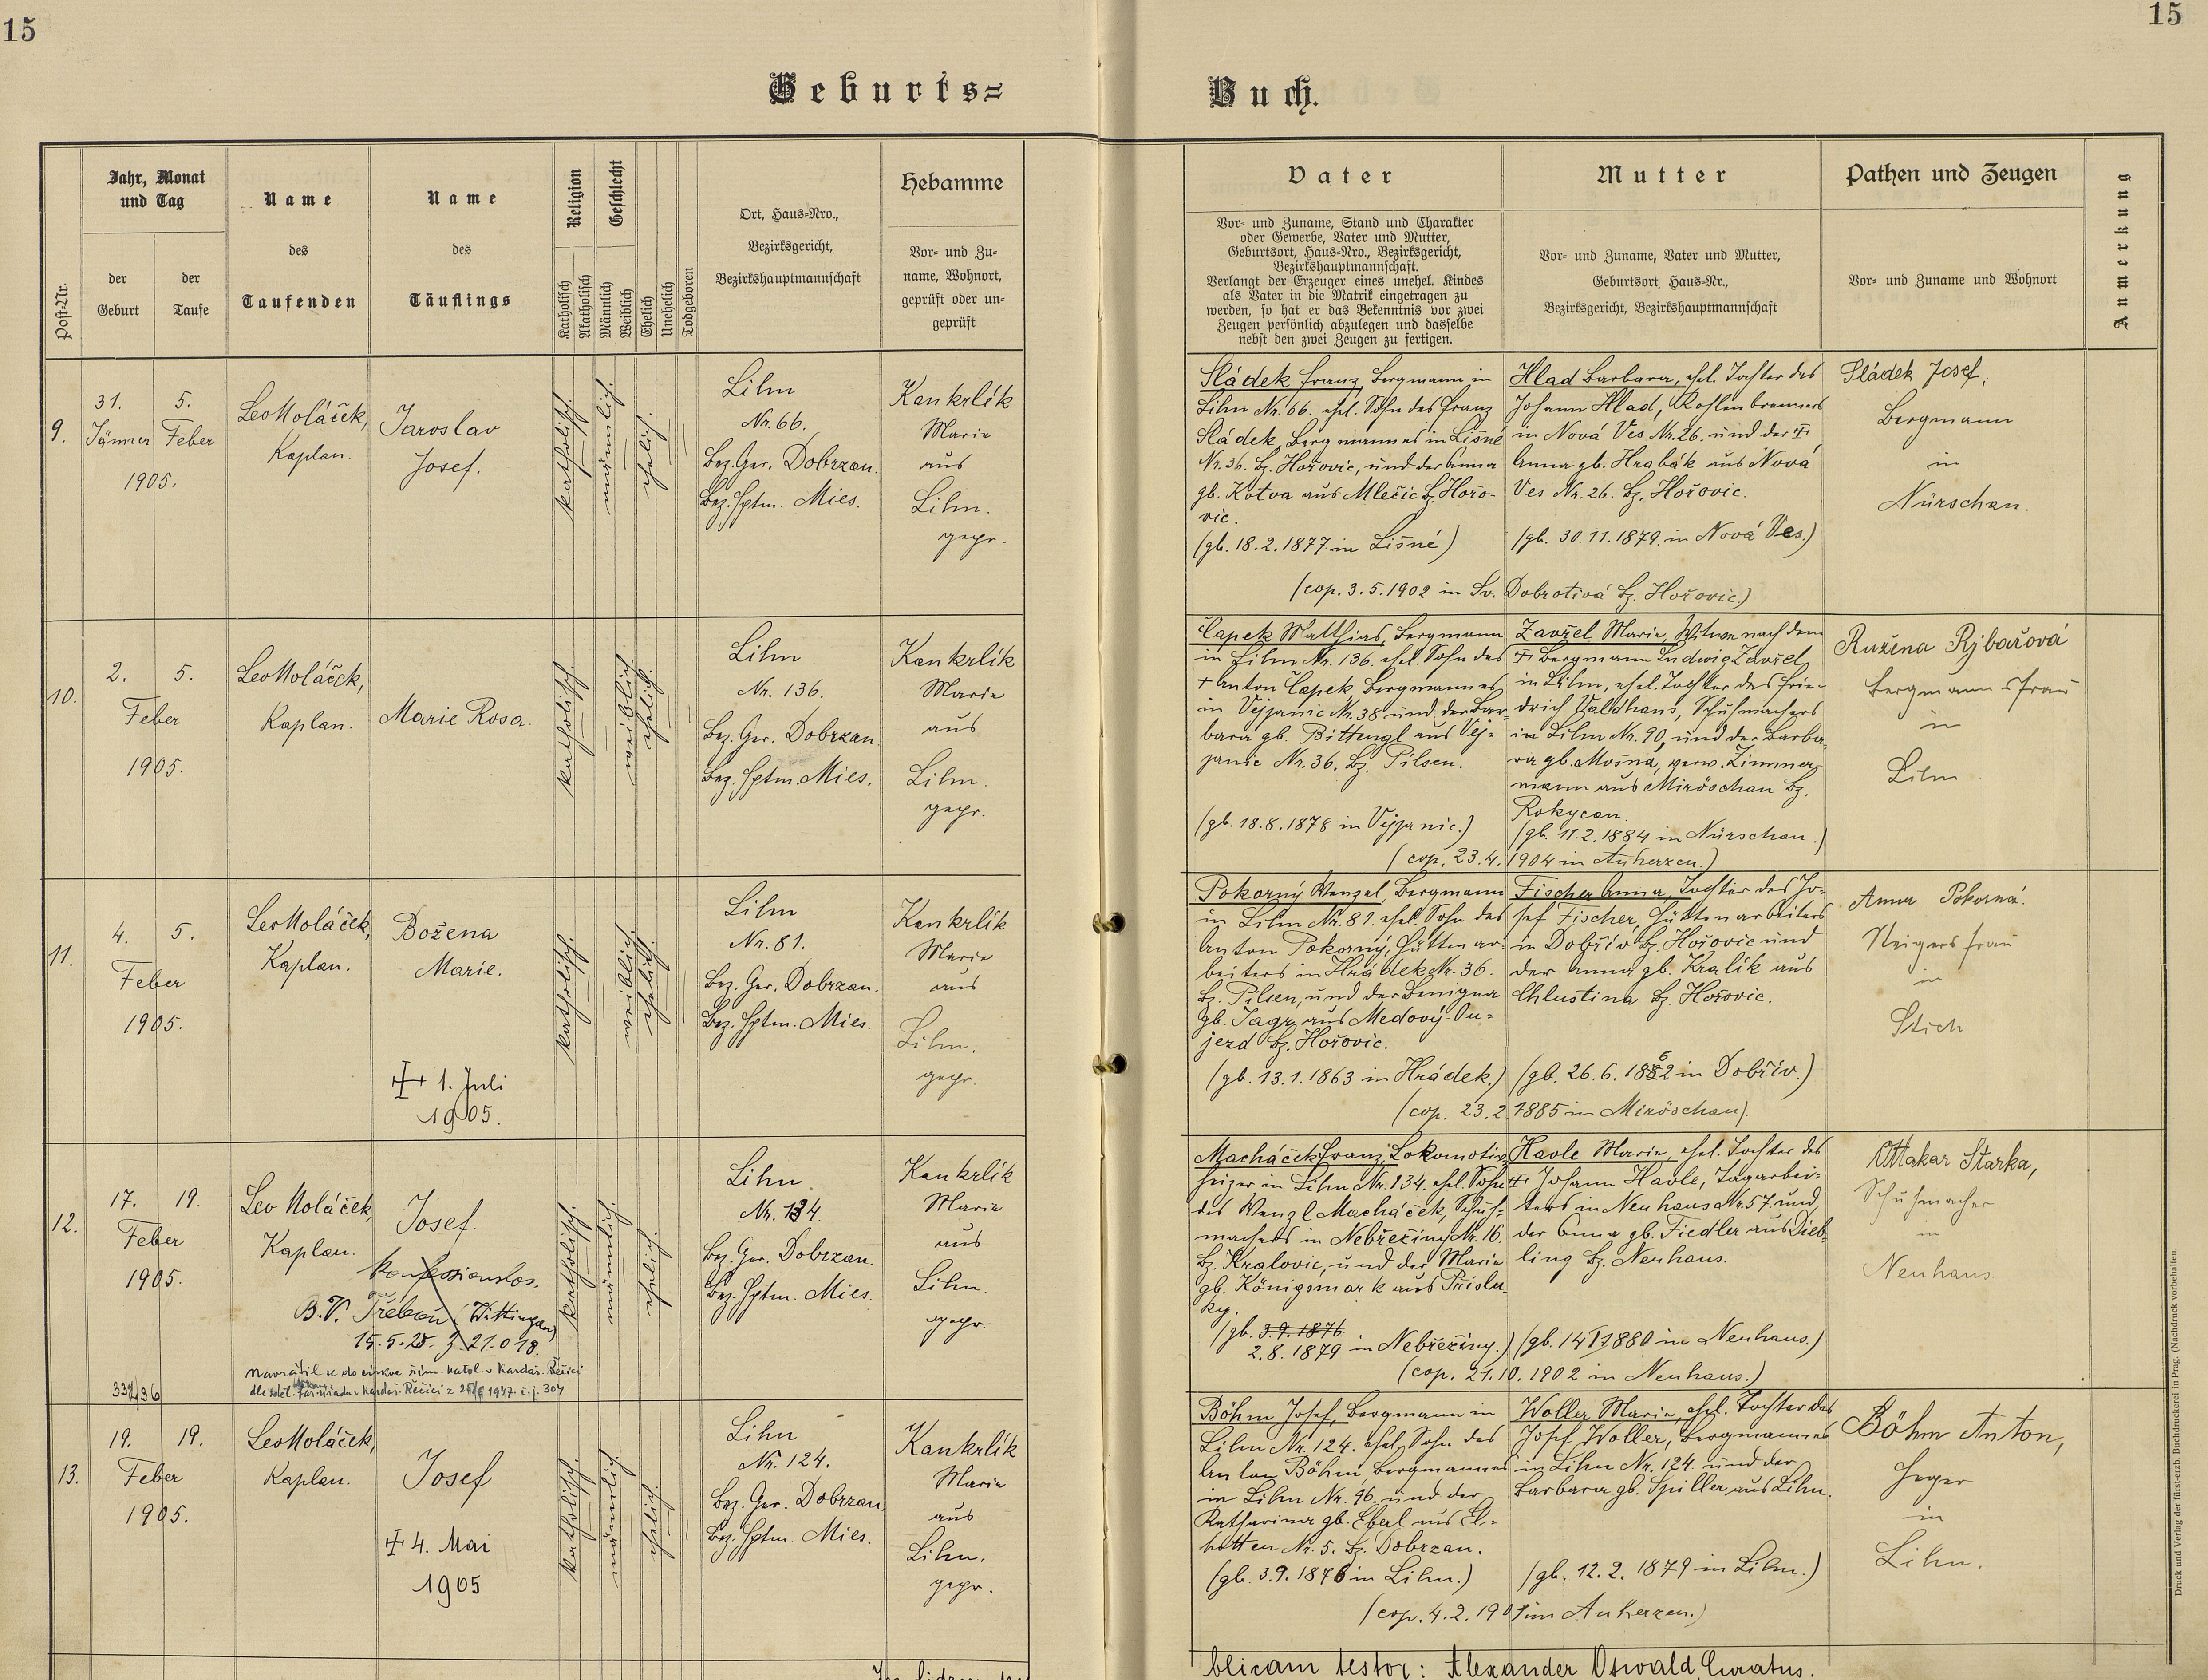 15
15
Geburts=
Buch.
Post-Nr.
Jahr, Monat
und Tag
der
Geburt
der
Taufe
Name
des
Taufenden
Name
des
Täuflings
Religion
Katholisch
Akatholisch
Geschlecht
Männlich
Weiblich
Ehelich
Unehelich
Todgeboren
Ort, Haus=Nro.,
Bezirksgericht,
Bezirkshauptmannschaft
Hebamme
Vor= und Zu=
name, Wohnort,
geprüft oder un=
geprüft
Vater
Vor= und Zuname, Stand und Charakter
oder Gewerbe, Vater und Mutter,
Geburtsort, Haus=Nro., Bezirksgericht,
Bezirkshauptmannschaft.
Verlangt der Erzeuger eines unehel. Kindes
als Vater in die Matrik eingetragen zu
werden, so hat er das Bekenntnis vor zwei
Zeugen persönlich abzulegen und dasselbe
nebst den zwei Zeugen zu fertigen.
Mutter
Vor= und Zuname, Vater und Mutter,
Geburtsort, Haus=Nr.,
Bezirksgericht, Bezirkshauptmannschaft
Pathen und Zeugen
Vor= und Zuname und Wohnort
Anmerkung
9.
31. 5.
Jänner Feber
1905.
Leo Holáček,
Kaplan.
Jaroslav
Josef.
katholisch.
männlich.
ehelich.
Lihn
Nr. 66.
Bez. Ger. Dobrzan.
Bez. Hptm. Mies.
Kankrlík
Marie
aus
Lihn.
gepr.
Sládek Franz, Bergmann in
Lihn Nr. 66. ehel. Sohn des Franz
Sládek, Bergmannes in Lišné
Nr. 36. Bz. Hořovic, und der Anna
gb. Kotva aus Mlečic Bz. Hořo-
vic.
(gb. 18.2.1877 in Lišné)
Hlad Barbara, ehel. Tochter des
Johann Hlad, Kohlenbrenners
in Nová Ves Nr. 26. und der ‡
Anna gb. Hrabák aus Nová
Ves Nr. 26. Bz. Hořovic.
(gb. 30.11.1879. in Nová Ves.)
(cop. 3.5.1902 in Sv. Dobrotivá Bz. Hořovic.)
Sládek Josef,
Bergmann
in
Nürschan.
10.
2. 5.
Feber
1905.
Leo Holáček,
Kaplan.
Marie Rosa.
katholisch.
weiblich.
ehelich.
Lihn
Nr. 136.
Bez. Ger. Dobrzan.
Bez. Hptm. Mies.
Kankrlík
Marie
aus
Lihn.
gepr.
Čapek Matthias, Bergmann
in Lihn Nr. 136. ehel. Sohn des
+ Anton Čapek Bergmannes
in Vejpanic Nr. 38 und der Bar-
bara gb. Bittengl aus Vej-
panic Nr. 36. Bz. Pilsen.
(gb. 18.8.1878 in Vejpanic.)
Zavřel Marie, Witwe nach dem
‡ Bergmann Ludwig Zavřel
in Lihn, ehel. Tochter des Frie-
drich Valdhans, Schuhmachers
in Lihn Nr. 90, und der Barba-
ra gb. Mošna, verw. Zimmer-
mann aus Miröschau Bz.
Rokycan.
(gb. 11.2.1884 in Nürschan.)
(cop. 23.4. 1904 in Auherzen.)
Ružena Rybařová
Bergmannsfrau
in
Lihn
11.
4. 5.
Feber
1905.
Leo Holáček,
Kaplan.
Božena
Marie.
‡ 1. Juli
1905.
katholisch.
weiblich.
ehelich.
Lihn
Nr. 81.
Bez. Ger. Dobrzan.
Bez. Hptm. Mies.
Kankrlík
Marie
aus
Lihn.
gepr.
Pokorný Wenzel, Bergmann
in Lihn Nr. 81. ehel. Sohn des
Anton Pokorný, Hüttenar-
beiters in Hrádek Nr. 36.
Bz. Pilsen, und der Benigna
gb. Jagr aus Medový-Ou-
jezd Bz. Hořovic.
(gb. 13.1.1863 in Hrádek.)
Fischer Anna, Tochter des Jo-
sef Fischer, Hüttenarbeiters
in Dobřív Bz. Hořovic und
der Anna gb. Kralík aus
Chlustina Bz. Hořovic.
(gb. 26.6. 1862 in Dobřív.)
(cop. 23.2.1885 in Miröschau).
Anna Pokorná.
Steigersfrau
in
Stich
12.
17. 19.
Feber
1905.
332/36
Leo Holáček,
Kaplan.
Josef.
konfessionslos.
B.V. Třeboň (Wittingau)
15.5.25. z. 21.018.
Navrátil se do církve řím. katol. v Kardaš. Řečici
dle sděl. far. úřadu v Kardaš. Řečici z 25/6 1947. č.j. 304
katholisch.
männlich.
ehelich.
Lihn.
Nr. 134.
Bez. Ger. Dobrzan.
Bez. Hptm. Mies.
Kankrlík
Marie
aus
Lihn.
gepr.
Macháček Franz, Lokomotiv-
heizer in Lihn Nr. 134. ehel. Sohn
des Wenzl Macháček, Schuh-
machers in Nebřeziny Nr. 16.
Bz. Kralovic, und der Marie
gb. Königsmark aus Třísla-
ky.
(gb. 3.9.1876
2.8.1879 in Nebřeziny.)
Havle Marie, ehel. Tochter des
‡ Johann Havle, Tagarbei-
ters in Neuhaus Nr. 57. und
der Anna gb. Fiedler aus Dieb-
ling Bz. Neuhaus.
(gb. 14 1880 in Neuhaus.)
(cop. 21.10. 1902 in Neuhaus.)
Ottakar Starka,
Schuhmacher
in
Neuhaus.
13.
19. 19.
Feber
1905.
Leo Holáček,
Kaplan.
Josef
‡ 4. Mai
1905
katholisch.
männlich
ehelich.
Lihn
Nr. 124.
Bez. Ger. Dobrzan.
Bez. Hptm. Mies.
Kankrlík
Marie
aus
Lihn.
gepr.
Böhm Josef, Bergmann in
Lihn Nr. 124. ehel. Sohn des
Anton Böhm, Bergmannes
in Lihn Nr. 96. und der
Katharina gb. Eberl aus El-
hotten Nr. 5. Bz. Dobrzan.
(gb. 3.9.1876 in Lihn.)
Woller Marie, ehel. Tochter des
Josef Woller, Bergmannes
in Lihn Nr. 124. und der
Barbara gb. Spiller aus Lihn.
(gb. 12.2.1879 in Lihn.)
(cop. 4.2.1901 in Auherzen.)
Böhm Anton,
Heger
in
Lihn.
blicam testor: Alexander Oswald, Curatus.
Druck und Verlag der fürst-erzb. Buchdruckerei in Prag. (Nachdruck vorbehalten.